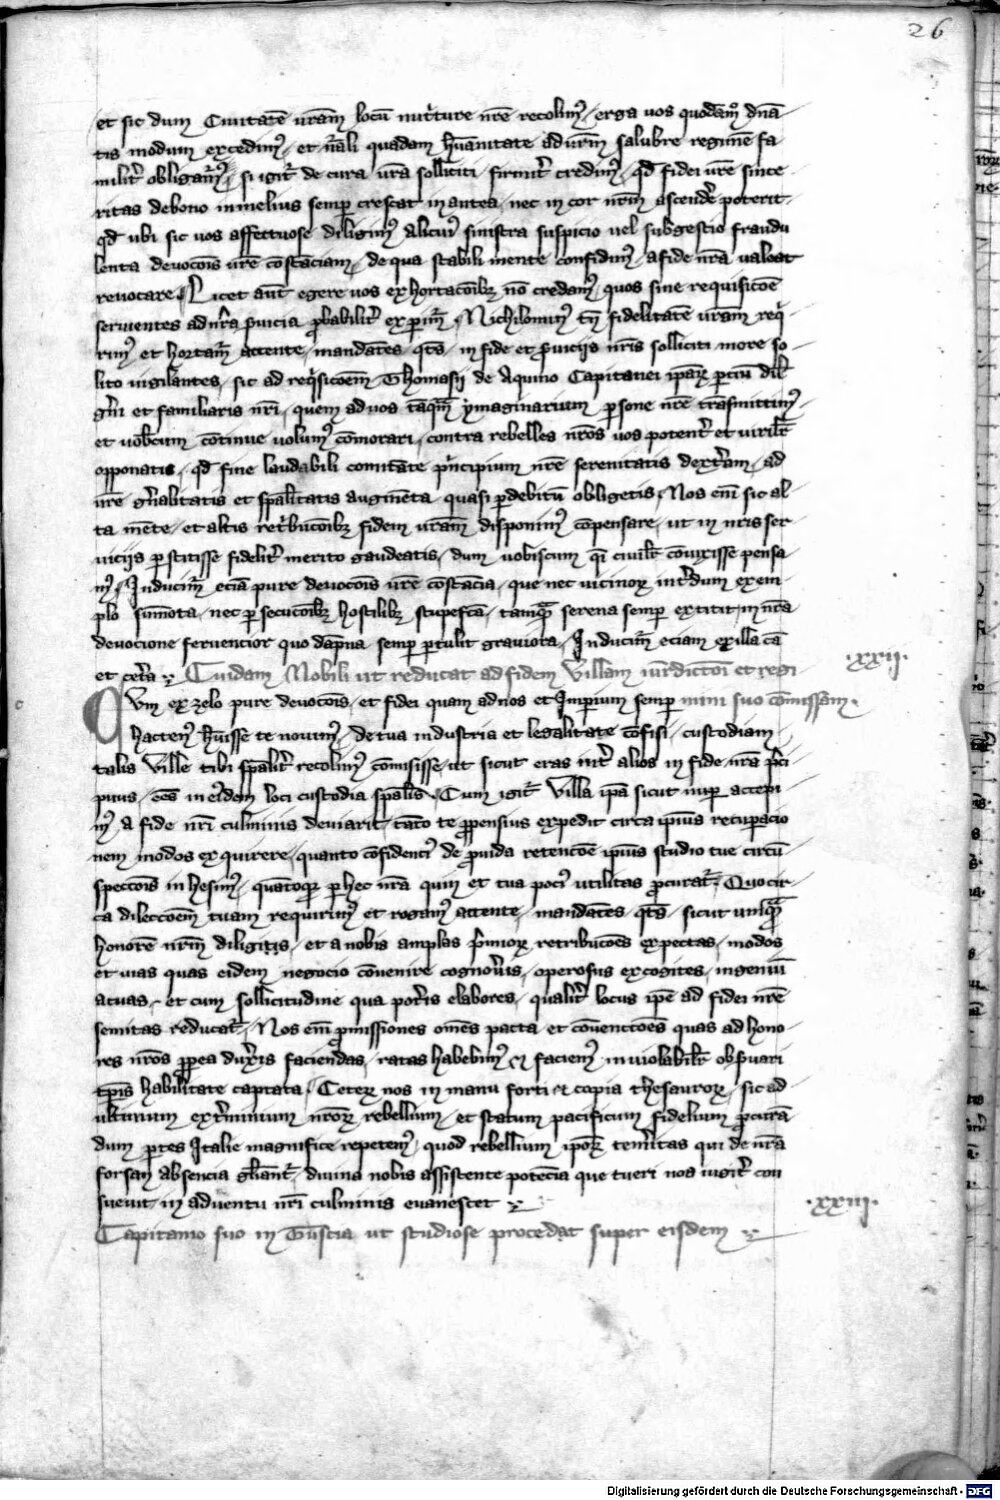 26
et sic dum Ciuitatē vr̄am locū nut'ture nr̄e recolim9 erga uos quodam9 dnā
tis modum excedim9 et n̄ali quadam hūanitate ad ur̄m salubre regimē fa
milit' obligam̄9 si igit' de cura ur̄a solliciti firmit' credim9 qd fidei ur̄e since
ritas de bono in melius semp crescat in antea nec in cor nr̄m ascende' poterit
qd ubi sic uos affectuose diligim9 alicui' sinistra suspicio uel subgestio fraudu
lenta deuocōis ur̄e cōstāciam de qua stabili mente confidim9 a fide nr̄a ualeat
reuocare Licet aut egere uos exhortacōibz nō credam9 quos sine requisicōe
seruientes ad nr̄a s'uicia p̄babilit' expim̄ Nichilomin9 tn̄ fidelitatē ur̄am req'
rim9 et hortam̄ attente mandātes qt̄s in fide et s'uiciis nr̄is solliciti more so
lito uigilantes sic ad req'sicōem Thomasii de Aquino Capitanei ip̄az p̄ciū dil'
gn̄i et familiaris nr̄i quem ad uos tāqm̄ ymaginarium psone nr̄e trāsmittim9
et uobcum cōtinue uolum9 cōmorari contra rebelles nr̄os uos potent' et uirilit'
opponatis qd fine laudabili comitāte p'ncipium nr̄e serenitatis dext'am ad
ur̄e gn̄alitatis et sp̄alitatis augmēta quasi p debitū obligetis Nos eni sic al
ta mēte et altis ret'bucōibz fidem ur̄am disponim9 cōpensare ut in nr̄is ser
uiciis pstitisse fidelit' merito gaudeatis dum uobiscum q' ciuilit' cōuixisse pensa
m9 Inducim̄ eciā pure deuocōis ur̄e cōstācia que nec uicinor int'dum exem
plo summota nec psecucōibz hostilibz stupefca tamq̄ serena semp extitit in nr̄a
deuocione feruencior quo dāpna semp ptulit grauiora Inducim̄ eciam ex illa cā
et cet'a Cuidam Nobili ut reducat ad fidem Villam iur̄dictōi et regi
·xxij·
Vm ex zelo pure deuocōis et fidei quam ad nos et Impium semp mini suo cōmissam
hacten9 huisse te nouim9 de tua industria et legalitate cōfisi custodiam
talis Ville tibi sp̄alit' recolim9 cōmisisse ut sicut eras int' alios in fide nr̄a p'ci
puus ees in eidem loci custodia sp̄alis Cum igit' Villa ip̄a sicut nup accepi
m9 a fide nr̄i culminis deuiarit tāto te ppensius expedit circa ipius recupacio
nem modos exquirere quanto cōfidenci' de puida retencōe ipius studio tue circū
speccōis inhesim9 quātoqz p hec nr̄a quin et tua poci' utilitas pcurat' Quocir
ca dileccōem tuam requirim9 et rogam9 attente mandātes qt̄s sicut umqm̄
honorē nr̄m diligitis et a nobis amplas p'mior retribucōes expectas modos
et uias quas eidem negocio cōuenire cognou'is operosus excogites ingeniū
acuas et cum sollicitudine qua pot'is elabores qualit' locus ip̄e ad fidei nr̄e
semitas reducat' Nos eni pmissiones om̄es pacta et cōuenctōes quas ad hono
res nr̄os ppea dux'is faciendas ratas habebim9 et faciem9 inuiolabilit' obs'uari
tp̄is habilitate captata Ceterz nos in manu forti et copia thesauror sic ad
ultimum ext'minium nr̄or rebellium et statum pacificum fidelium pcurā
dum ptes Italie magnifice repetem9 quod rebellium ipor tem'itas qui de nr̄a
forsan absencia gl'iant' diuina nobis assistente potēcia que tueri nos iugit' con
sueuit in aduentu nr̄i culminis euanescet
·xxiij·
Capitanio suo in Tuscia ut studiose procedat super eisdem
Digitalisierung gefördert durch die Deutsche Forschungsgemeinschaft - DFG